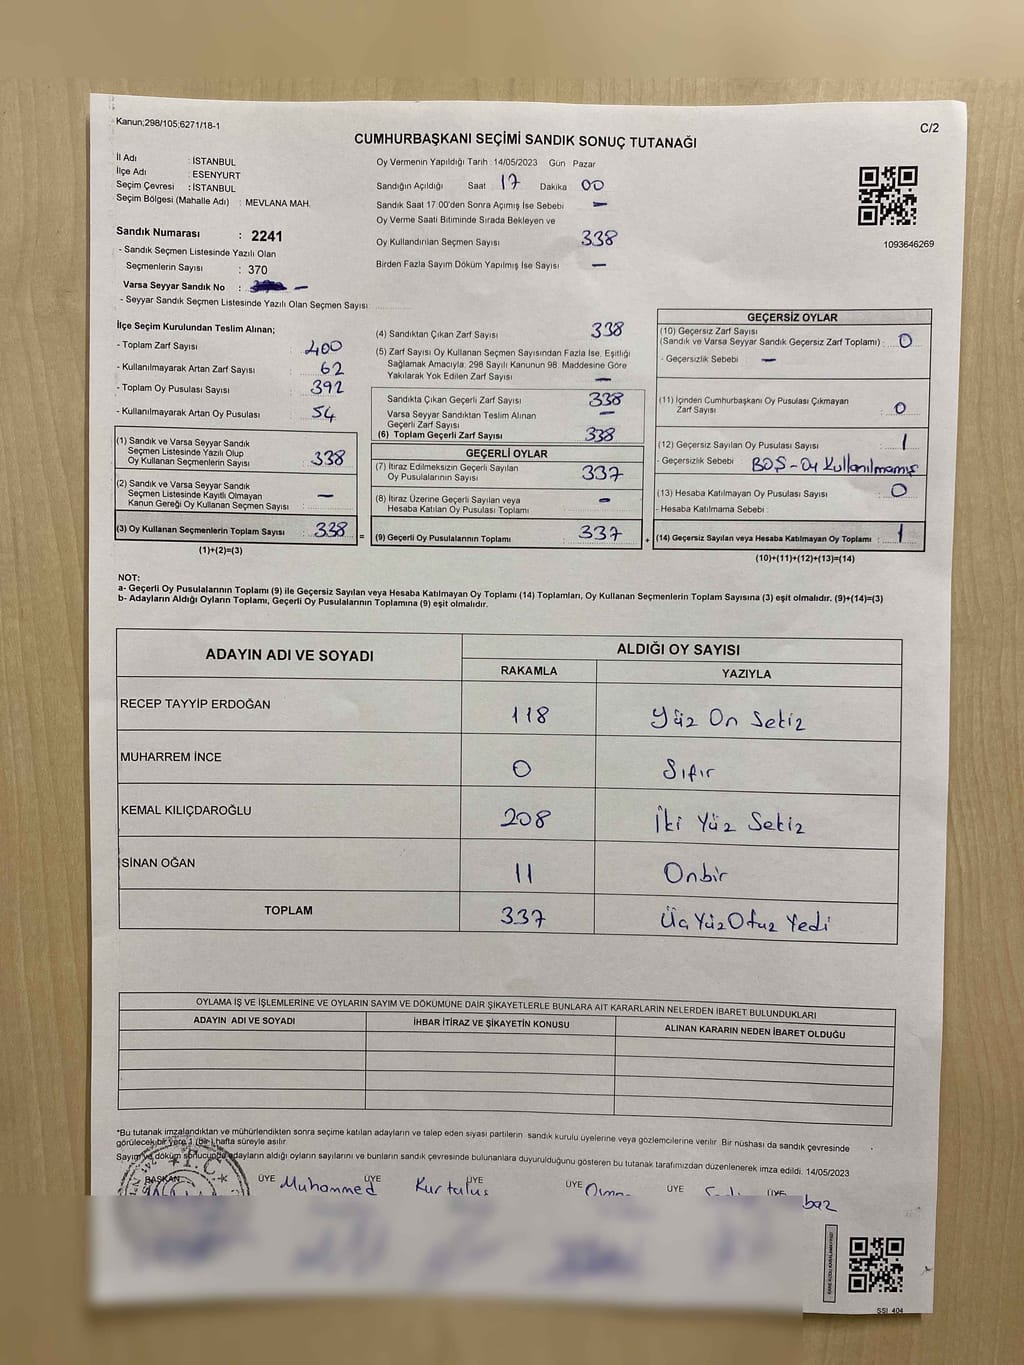 Kanun;298/105;6271/18-1
C/2
CUMHURBAŞKANI SEÇİMİ SANDIK SONUÇ TUTANAĞI
İl Adı : İSTANBUL
İlçe Adı : ESENYURT
Seçim Çevresi : İSTANBUL
Seçim Bölgesi (Mahalle Adı) : MEVLANA MAH.
Sandık Numarası : 2241
- Sandık Seçmen Listesinde Yazılı Olan
Seçmenlerin Sayısı : 370
Varsa Seyyar Sandık No : –
- Seyyar Sandık Seçmen Listesinde Yazılı Olan Seçmen Sayısı:
Oy Vermenin Yapıldığı Tarih : 14/05/2023 Gün Pazar
Sandığın Açıldığı Saat 17 Dakika 00
Sandık Saat 17:00'den Sonra Açımış İse Sebebi –
Oy Verme Saati Bitiminde Sırada Bekleyen ve
Oy Kullandırılan Seçmen Sayısı 338
Birden Fazla Sayım Döküm Yapılmış İse Sayısı –
1093646269
İlçe Seçim Kurulundan Teslim Alınan;
- Toplam Zarf Sayısı : 400
- Kullanılmayarak Artan Zarf Sayısı : 62
- Toplam Oy Pusulası Sayısı : 392
- Kullanılmayarak Artan Oy Pusulası : 54
(1) Sandık ve Varsa Seyyar Sandık
Seçmen Listesinde Yazılı Olup
Oy Kullanan Seçmenlerin Sayısı : 338
(2) Sandık ve Varsa Seyyar Sandık
Seçmen Listesinde Kayıtlı Olmayan
Kanun Gereği Oy Kullanan Seçmen Sayısı : –
(3) Oy Kullanan Seçmenlerin Toplam Sayısı : 338 =
(1)+(2)=(3)
(4) Sandıktan Çıkan Zarf Sayısı 338
(5) Zarf Sayısı Oy Kullanan Seçmen Sayısından Fazla İse, Eşitliği
Sağlamak Amacıyla; 298 Sayılı Kanunun 98. Maddesine Göre
Yakılarak Yok Edilen Zarf Sayısı –
Sandıkta Çıkan Geçerli Zarf Sayısı 338
Varsa Seyyar Sandıktan Teslim Alınan –
Geçerli Zarf Sayısı
(6) Toplam Geçerli Zarf Sayısı 338
GEÇERLİ OYLAR
(7) İtiraz Edilmeksizin Geçerli Sayılan
Oy Pusulalarının Sayısı : 337
(8) İtiraz Üzerine Geçerli Sayılan veya –
Hesaba Katılan Oy Pusulası Toplamı :
(9) Geçerli Oy Pusulalarının Toplamı : 337 +
GEÇERSİZ OYLAR
(10) Geçersiz Zarf Sayısı
(Sandık ve Varsa Seyyar Sandık Geçersiz Zarf Toplamı) : 0
- Geçersizlik Sebebi : –
(11) İçinden Cumhurbaşkanı Oy Pusulası Çıkmayan
Zarf Sayısı : 0
(12) Geçersiz Sayılan Oy Pusulası Sayısı : 1
- Geçersizlik Sebebi : BOŞ - Oy Kullanılmamış
(13) Hesaba Katılmayan Oy Pusulası Sayısı : 0
- Hesaba Katılmama Sebebi :
(14) Geçersiz Sayılan veya Hesaba Katılmayan Oy Toplamı : 1
(10)+(11)+(12)+(13)=(14)
NOT:
a- Geçerli Oy Pusulalarının Toplamı (9) ile Geçersiz Sayılan veya Hesaba Katılmayan Oy Toplamı (14) Toplamları, Oy Kullanan Seçmenlerin Toplam Sayısına (3) eşit olmalıdır. (9)+(14)=(3)
b- Adayların Aldığı Oyların Toplamı, Geçerli Oy Pusulalarının Toplamına (9) eşit olmalıdır.
ADAYIN ADI VE SOYADI ALDIĞI OY SAYISI
RAKAMLA YAZIYLA
RECEP TAYYİP ERDOĞAN 118 Yüz On Sekiz
MUHARREM İNCE 0 Sıfır
KEMAL KILIÇDAROĞLU 208 İki Yüz Sekiz
SİNAN OĞAN 11 Onbir
TOPLAM 337 Üç Yüz Otuz Yedi
OYLAMA İŞ VE İŞLEMLERİNE VE OYLARIN SAYIM VE DÖKÜMÜNE DAİR ŞİKAYETLERLE BUNLARA AİT KARARLARIN NELERDEN İBARET BULUNDUKLARI
ADAYIN ADI VE SOYADI İHBAR İTİRAZ VE ŞİKAYETİN KONUSU ALINAN KARARIN NEDEN İBARET OLDUĞU
*Bu tutanak imzalandıktan ve mühürlendikten sonra seçime katılan adayların ve talep eden siyasi partilerin sandık kurulu üyelerine veya gözlemcilerine verilir. Bir nüshası da sandık çevresinde
görülecek bir yere 1 (bir) hafta süreyle asılır.
Sayım ve döküm sonucunda adayların aldığı oyların sayılarını ve bunların sandık çevresinde bulunanlara duyurulduğunu gösteren bu tutanak tarafımızdan düzenlenerek imza edildi. 14/05/2023
BAŞKAN ÜYE ÜYE ÜYE ÜYE ÜYE ÜYE
Muhammed Kurtuluş baz
T.C.
SSİ 404